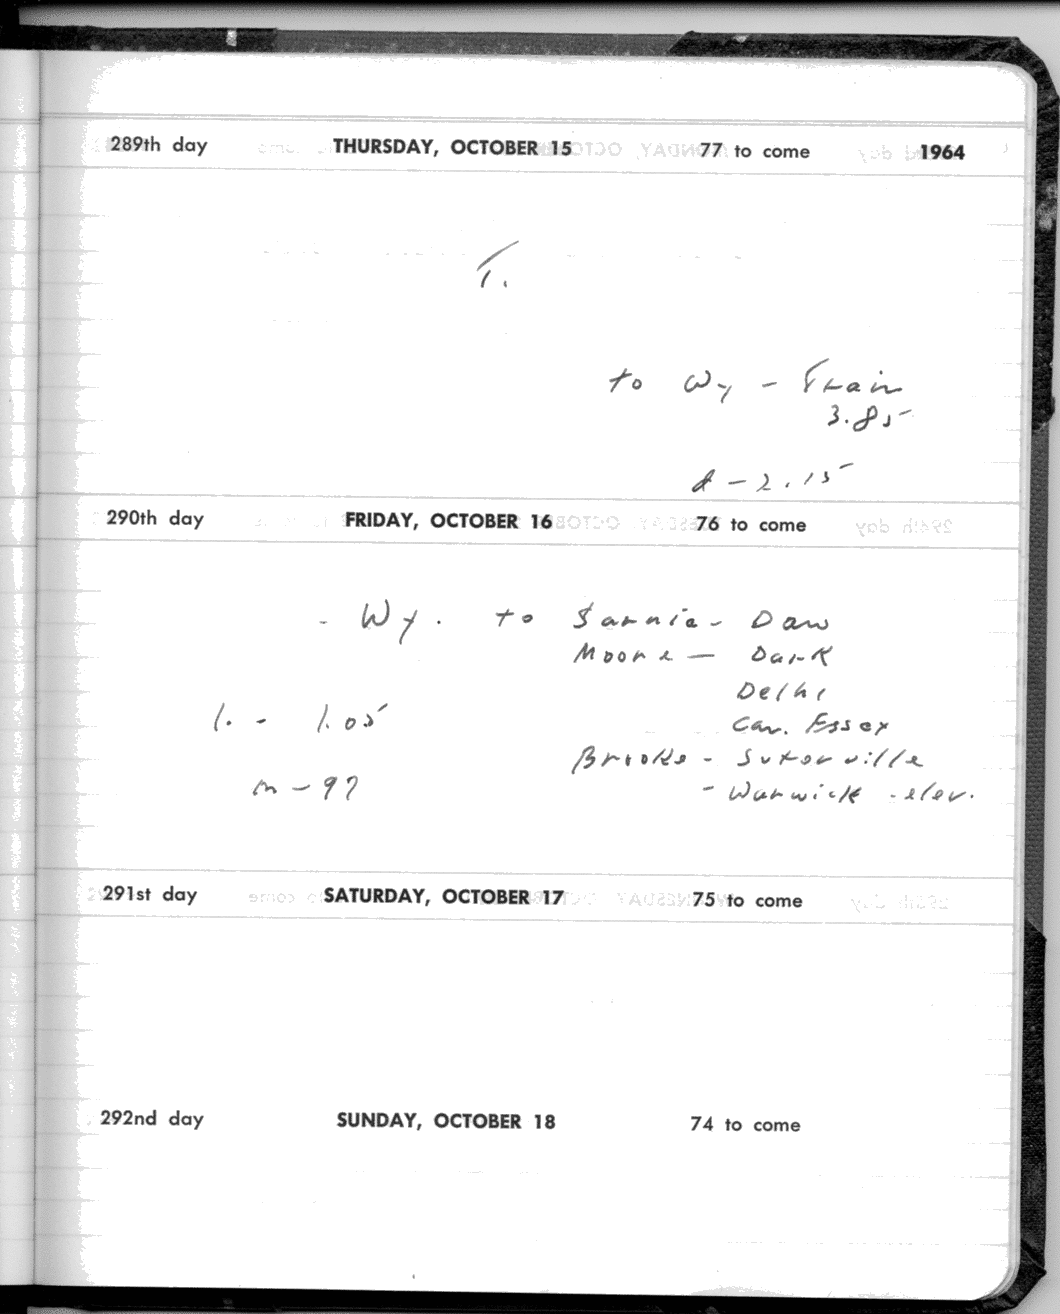 289th day THURSDAY, OCTOBER 15 77 to come 1964
T.
to Wy - Train
3.85
d - 2.15
290th day FRIDAY, OCTOBER 16 76 to come
- Wy. to Sarnia - Daw
Moore - Dark
Delhi
1. - 1.05 Can. Essex
Brooke - Sutorville
m - 97 - Warwick - elev.
291st day SATURDAY, OCTOBER 17 75 to come
292nd day SUNDAY, OCTOBER 18 74 to come